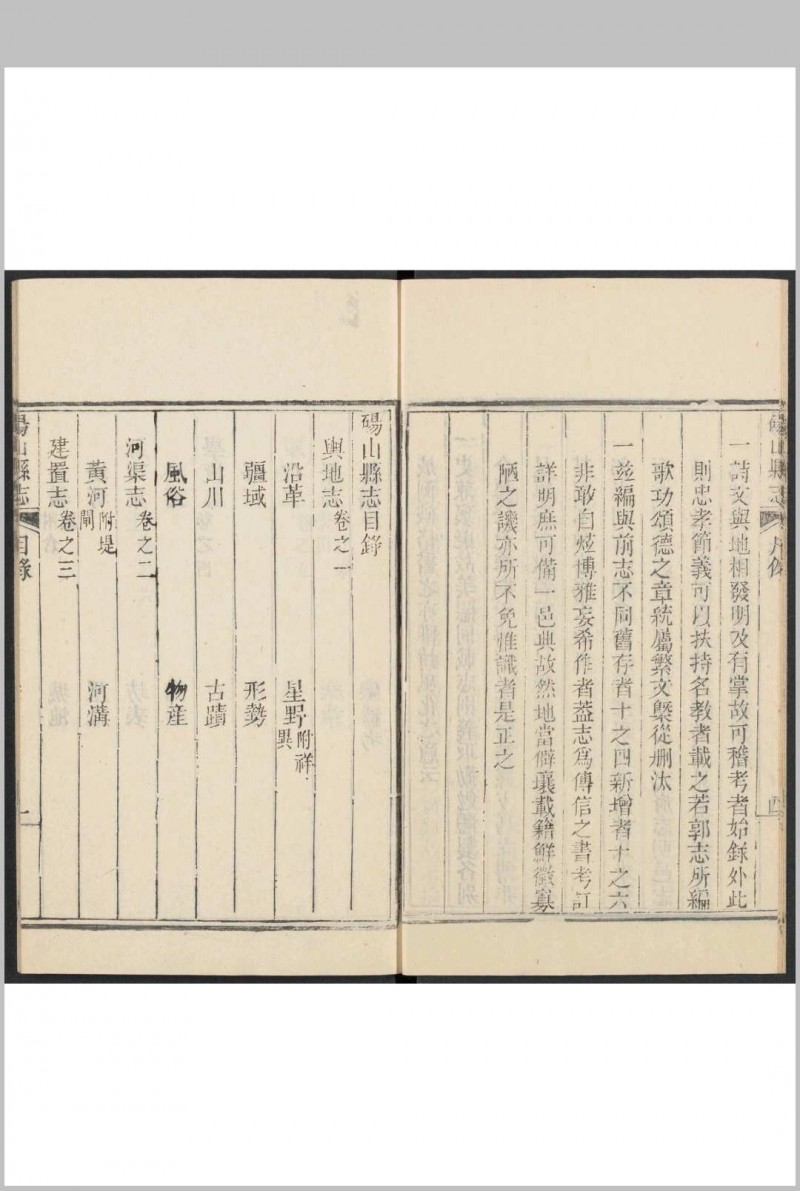 碭山縣志
凡例
四
一詩文與地相發明及有掌故可稽考者始錄外此
則忠孝節義可以扶持名教者載之若郭志所編
歌功頌德之章統屬繁文槩從删汰
一玆編與前志不同舊存者十之四新增者十之六
非敢自炫博雅妄希作者葢志爲傳信之書考訂
詳明庶可備一邑典故然地當僻壤載籍鮮徵寡
陋之譏亦所不免惟識者是正之
碭山縣志目錄
輿地志卷之一
沿革 星野附祥異
疆域 形勢
山川 古蹟
風俗 物産
河渠志卷之二
黃河附堤閘 河溝
建置志卷之三
碭山縣志
目錄
一